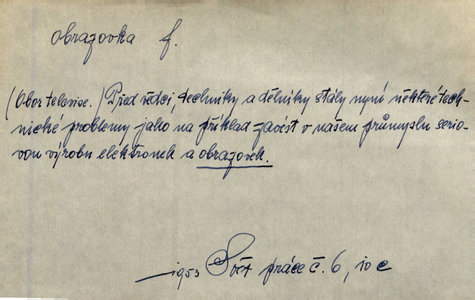 obrazovka f.
(Obor televise.) Před vědci, techniky a dělníky stály nyní některé tech-
nické problémy jako na příklad zavést v našem průmyslu serio-
vou výrobu elektronek a obrazovek.
1953 Svět práce č. 6, 10 c